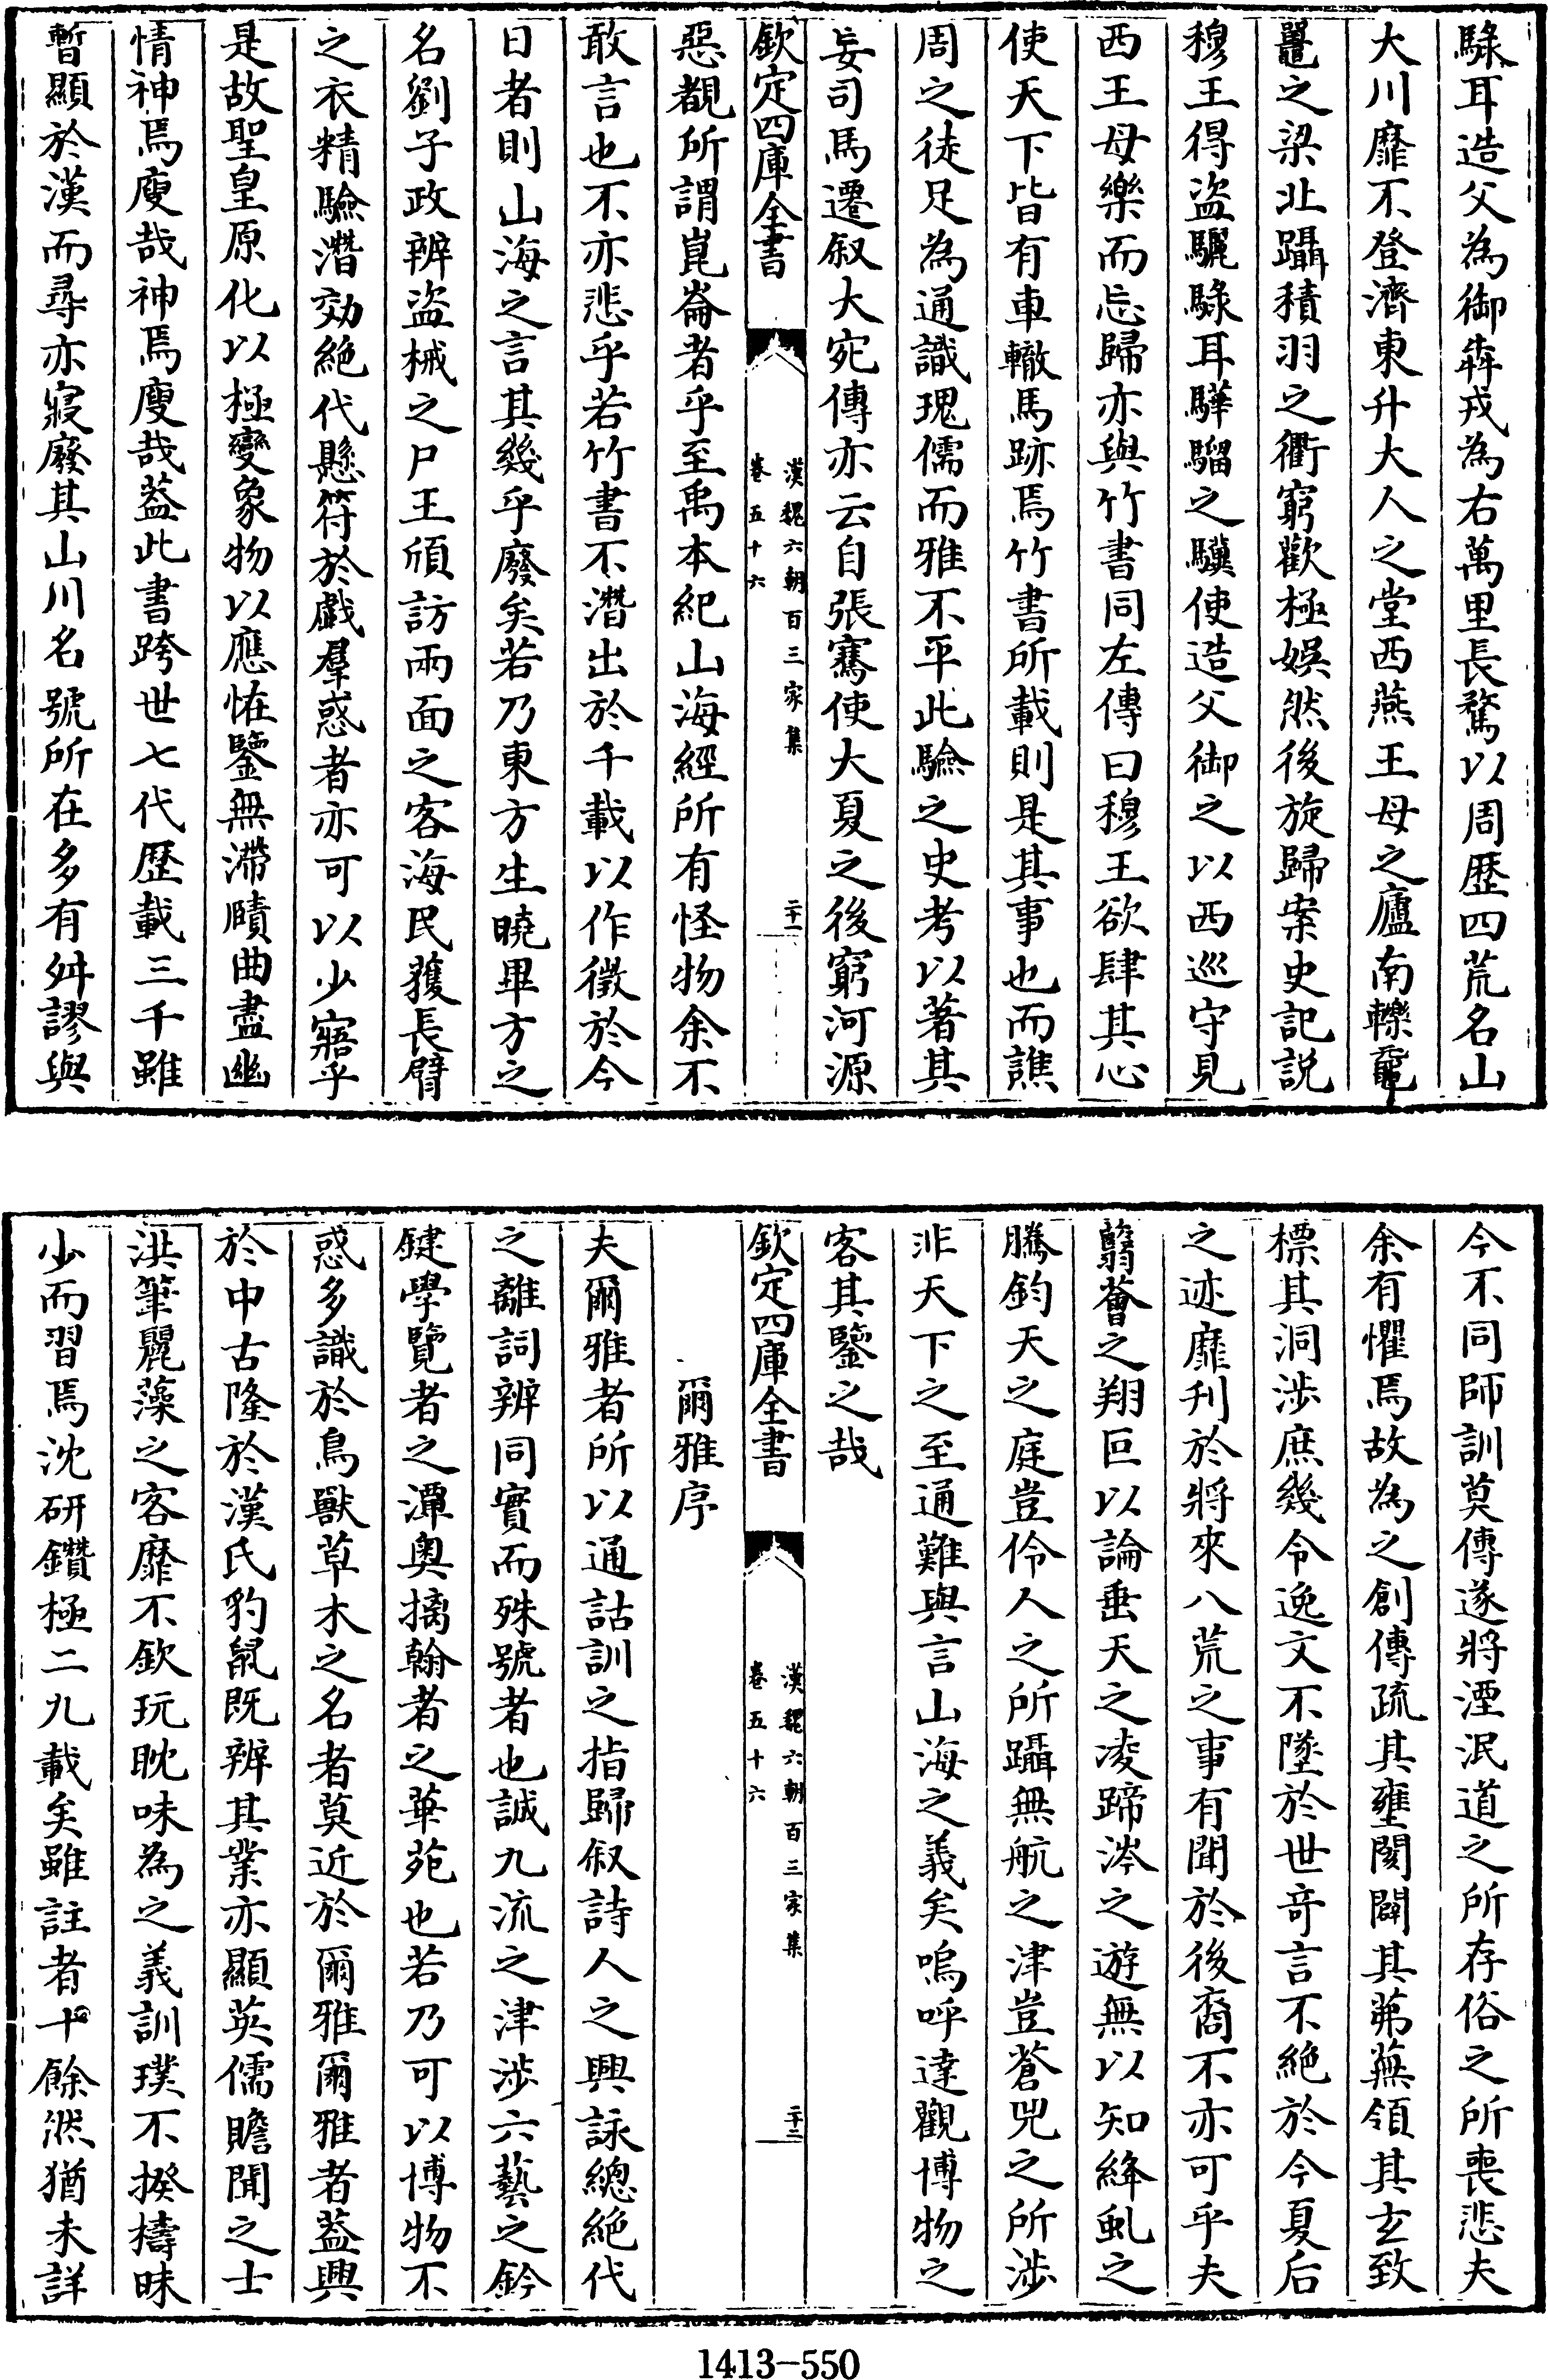 騄耳造父為御犇戎為右萬里長騖以周歴四荒名山
大川靡不登濟東升大人之堂西燕王母之廬南轢黿
鼉之梁北躡積羽之衢窮歡極娛然後旋歸案史記説
穆王得盜驪騄耳驊騮之驥使造父御之以西巡守見
西王母樂而忘歸亦與竹書同左傳曰穆王欲肆其心
使天下皆有車轍馬跡焉竹書所載則是其事也而譙
周之徒足為通識瑰儒而雅不平此驗之史考以著其
妄司馬遷叙大宛傳亦云自張騫使大夏之後窮河源
欽定四庫全書
漢魏六朝百三家集
卷五十六
二十一
惡覩所謂崑崙者乎至禹本紀山海經所有怪物余不
敢言也不亦悲乎若竹書不潛出於千載以作徵於今
日者則山海之言其幾乎廢矣若乃東方生曉畢方之
名劉子政辨盜械之尸王頎訪兩面之客海民獲長臂
之衣精驗潛効絶代懸符於戯羣惑者亦可以少寤乎
是故聖皇原化以極變象物以應怪鑒無滯賾曲盡幽
情神焉廋哉神焉廋哉葢此書跨世七代歴載三千雖
暫顯於漢而尋亦寢廢其山川名號所在多有舛謬與
今不同師訓莫傳遂將湮泯道之所存俗之所喪悲夫
余有懼焉故為之創傳疏其壅閡闢其茀蕪領其玄致
標其洞渉庶幾令逸文不墜於世奇言不絶於今夏后
之迹靡刋於將來八荒之事有聞於後裔不亦可乎夫
蘙薈之翔叵以論垂天之凌蹄涔之遊無以知絳虬之
騰鈞天之庭豈伶人之所躡無航之津豈蒼兕之所渉
非天下之至通難與言山海之義矣嗚呼達觀博物之
客其鑒之哉
欽定四庫全書
漢魏六朝百三家集
卷五十六
二十二
爾雅序
夫爾雅者所以通詁訓之指歸叙詩人之興詠總絶代
之離詞辨同實而殊號者也誠九流之津渉六藝之鈐
鍵學覽者之潭奧摛翰者之華苑也若乃可以博物不
惑多識於鳥獸草木之名者莫近於爾雅爾雅者葢興
於中古隆於漢氏豹鼠既辨其業亦顯英儒贍聞之士
洪筆麗藻之客靡不欽玩耽味為之義訓璞不揆檮昧
少而習焉沈研鑽極二九載矣雖註者十餘然猶未詳
1413-550